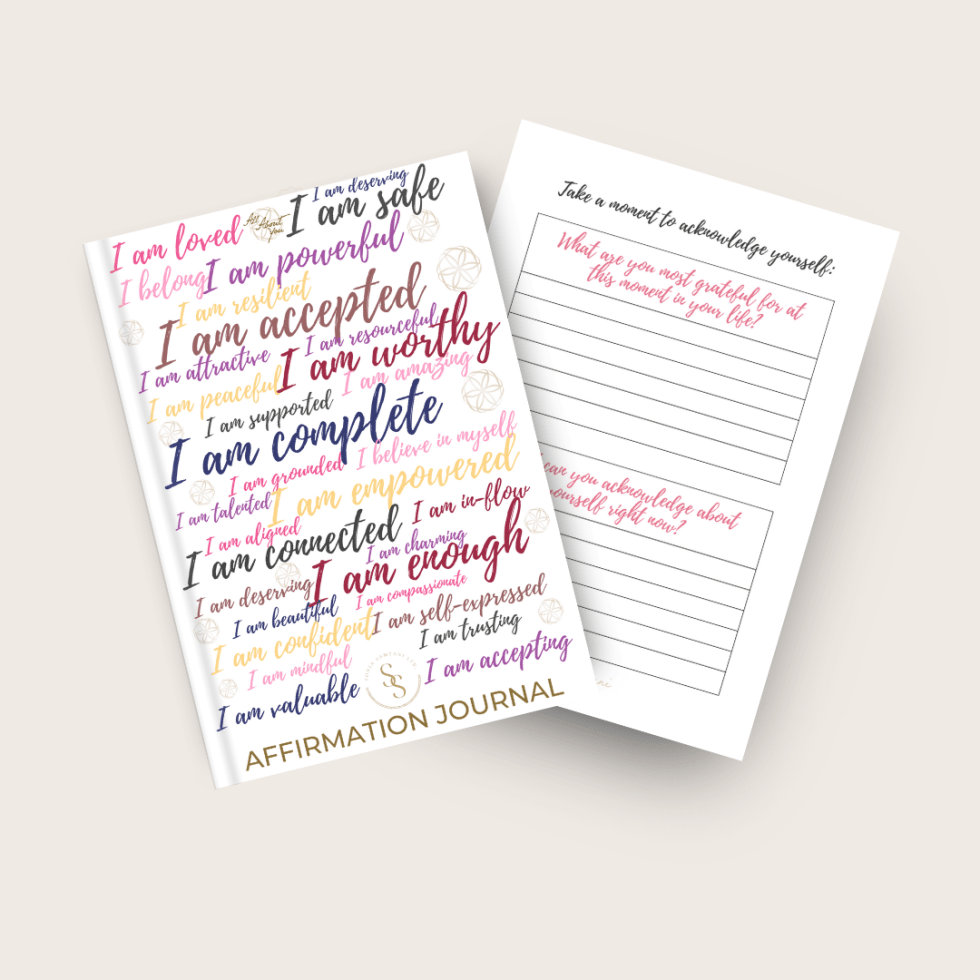 I am deserving
I am safe
I am loved
All About You
I belong
I am powerful
I am resilient
I am accepted
I am resourceful
I am attractive
I am worthy
I am amazing
I am peaceful
I am supported
I am complete
I believe in myself
I am grounded
I am empowered
I am talented
I am in-flow
I am aligned
I am connected
I am charming
I am enough
I am deserving
I am compassionate
I am beautiful
I am self-expressed
I am confident
I am trusting
I am mindful
I am accepting
I am valuable
SS
AFFIRMATION JOURNAL
Take a moment to acknowledge yourself:
What are you most grateful for at
this moment in your life?
can you acknowledge about
yourself right now?